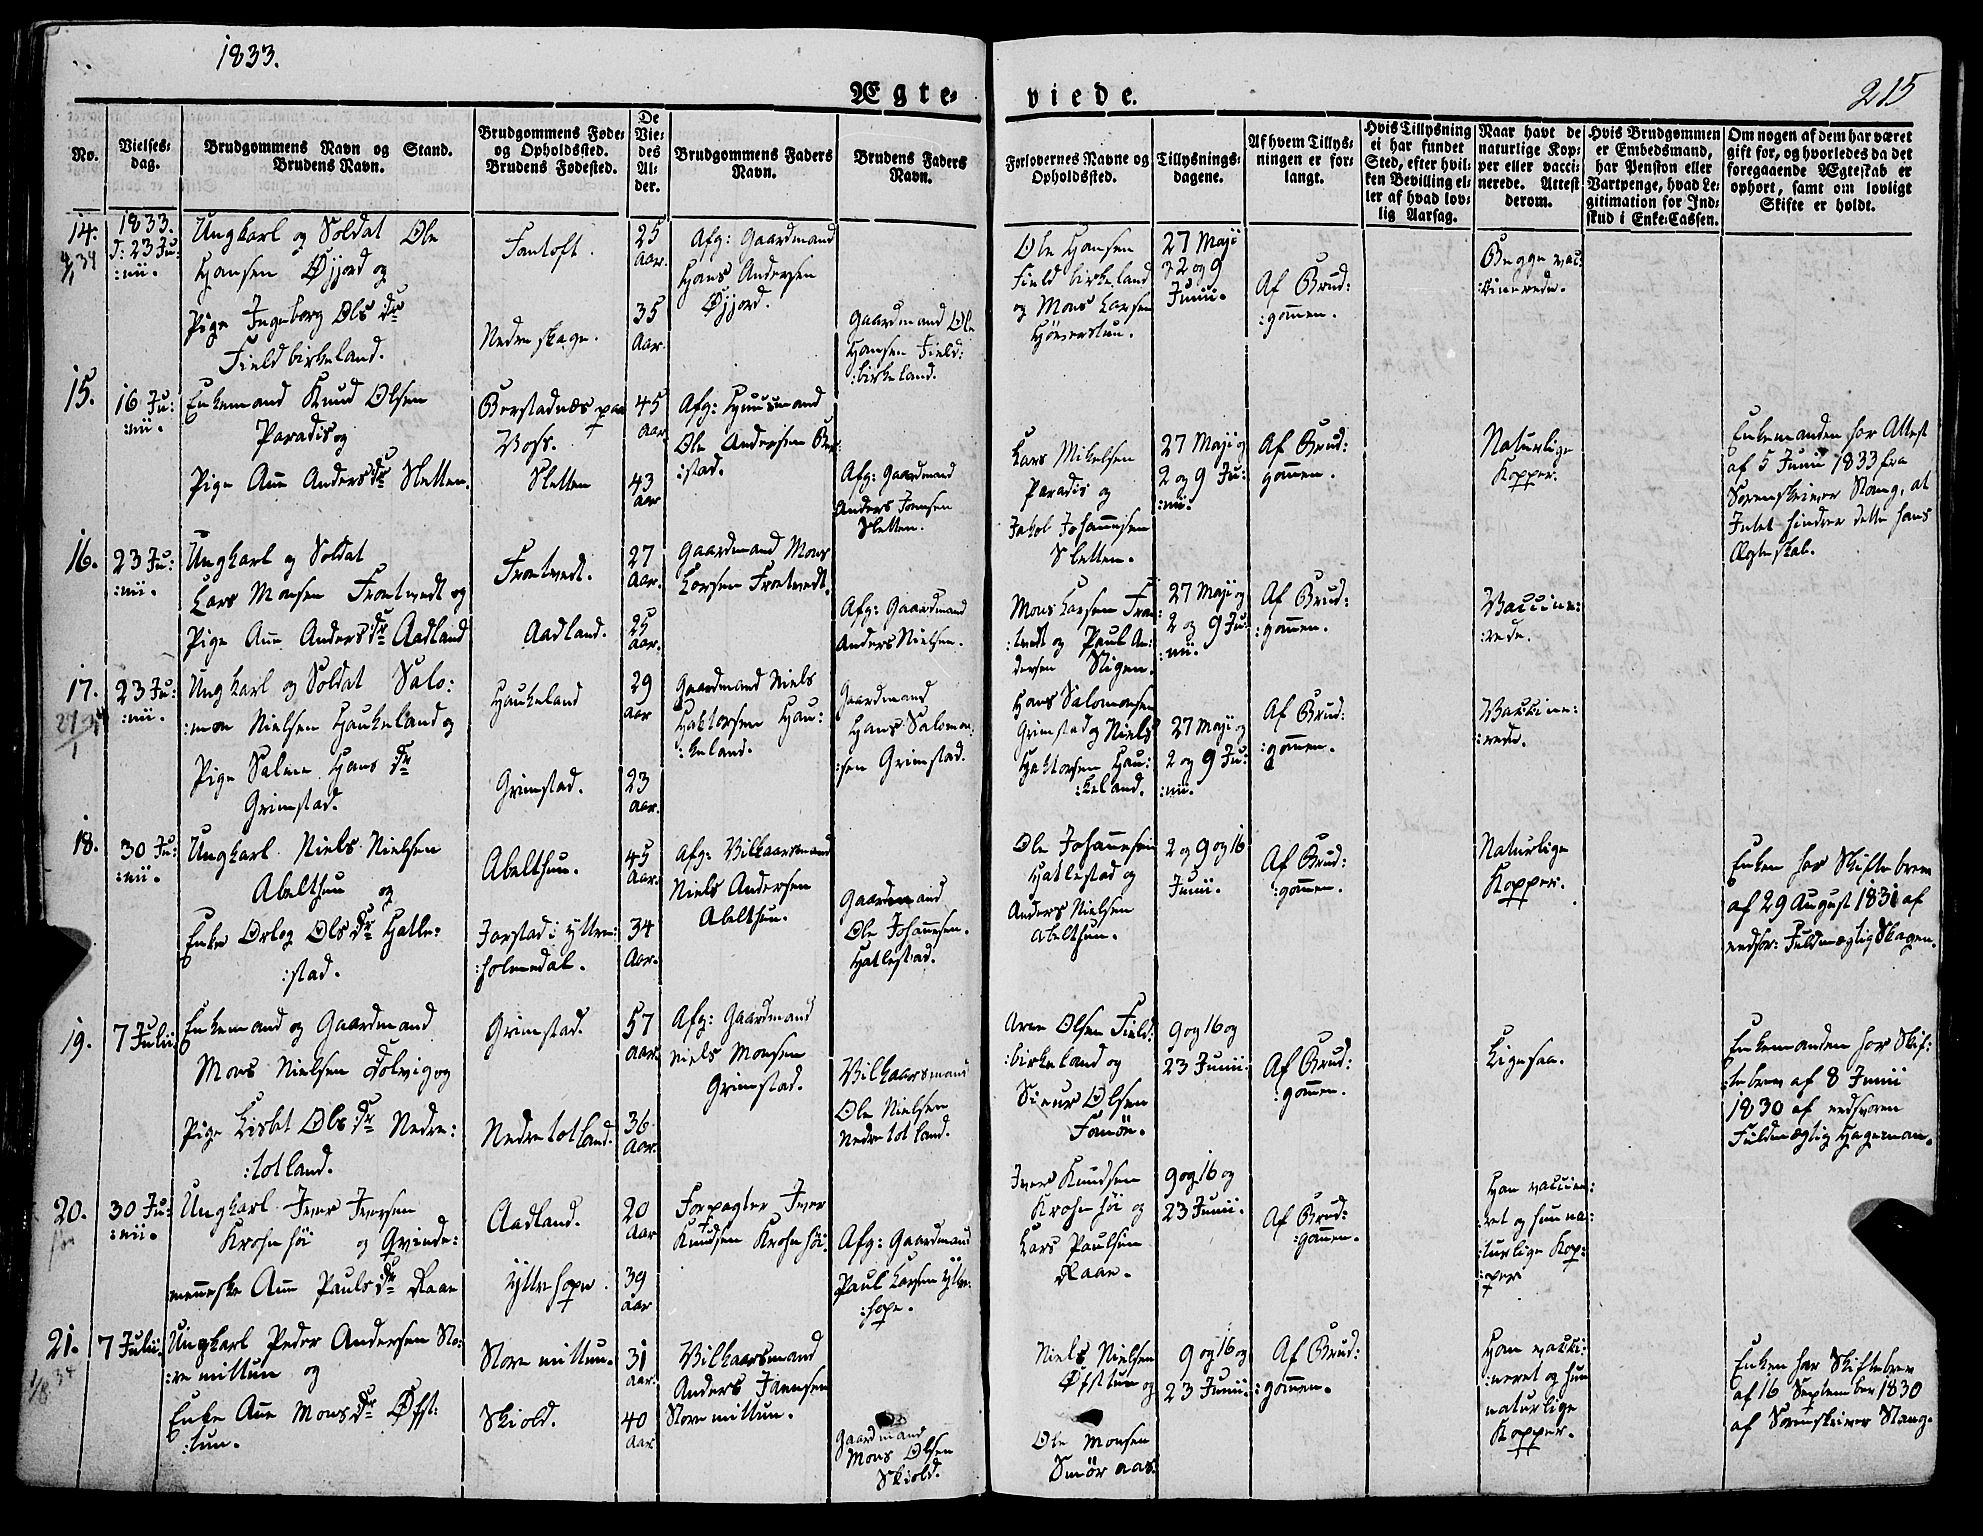 1833.
215
Ægte- viede.
No.
Vielses-
dag.
Brudgommens Navn og Stand.
Brudens Navn.
Brudgommens Føde-
og Opholdssted.
Brudens Fødested.
De
Vie-
des
Al-
der.
Brudgommens Faders
Navn.
Brudens Faders
Navn.
Forlovernes Navne og
Opholdssted.
Tillysnings-
dagene.
Af hvem Tillys-
ningen er for-
langt.
Hvis Tillysning
ei har fundet
Sted, efter hvil-
ken Bevilling el-
ler af hvad lov-
lig Aarsag.
Naar havt de
naturlige Kop-
per eller vacci-
nerede. Attest
derom.
Hvis Brudgommen
er Embedsmand,
har Pension eller
Vartpenge, hvad Le-
gitimation for Ind-
skud i Enke-Cassen.
Om nogen af dem har været
gift før, og hvorledes da det
foregaaende Ægteskab er
ophørt, samt om lovligt
Skifte er holdt.
14.
1833.
23 Ju:
:nii.
Ungkarl og Soldat Ole
Hansen Øyjord og
Pige Ingeborg Ols dr
Fieldbirkeland.
Fantoft.
Nedre skage.
25
aar.
35
Aar.
Afg: Gaardmand
Hans Andersen
Øyjord.
Gaardmand Ole
Hansen Field:
:birkeland.
Ole Hansen
Fieldbirkeland
og Mons Larsen
27 Maji
2 og 9
Junii.
Af Brud:
:gommen.
Begge vac:
:cinerede.
15.
16 Ju:
:nii.
Enkemand Knud Olsen
Paradis og
Pige Ane Anders dr Sletten.
Berstadnæs paa
Voss.
Sletten
45
aar
43
aar
Afg: Huusmand
Ole Andersen Ber:
:stad.
Afg: Gaardmand
Anders Jonsen
Sletten.
Lars Mikelsen
Paradis og
Jakob Johannesen
Sletten.
27 Maji og
2 og 9 Ju:
:nii.
Af Brud:
gommen.
Naturlige
Kopper.
Enkemanden har Attest
af 5 Junii 1833 fra
Sorenskriver Stang, at
Intet hindrer dette hans
Ægteskab.
16.
23 Ju:
:nii.
Ungkarl og Soldat
Lars Monsen Frotvedt og
Pige Ane Anders dr Aadland
Frotvedt.
Aadland.
27
aar.
25
aar.
Gaardmand Mons
Larsen Frotvedt.
Afg: Gaardmand
Anders Nielsen.
Mons Larsen Frot:
:vedt og Paul An:
dersen Stigen.
27 Maji og
2 og 9 Ju:
:nii.
Af Brud:
:gommen.
Vaccine:
:rede.
17.
23 Ju:
:nii.
Ungkarl og Soldat Salo:
:mon Nielsen Haukeland og
Pige Salme Hans dr
Grimstad.
Haukeland
Grimstad.
29
aar
23
aar.
Gaardmand Niels
Haktorsen Hau:
:keland.
Gaardmand
Hans Salomon:
:sen Grimstad.
Hans Salomonsen
Grimstad og Niels
Haktorsen Hau:
:keland.
27 Maji og
2 og 9 Ju:
:nii.
Af Brud:
:gommen.
Vaccine:
:rede.
18.
30 Ju:
:nii.
Ungkarl Niels Nielsen
Abelthun og
Enke Ols dr Hatle:
:stad.
Abelthun.
Jarstad i Yttre:
:holmedal.
45
Aar.
34
Aar.
Afg: Vilkaarsmand
Niels Andersen
Abelthun.
Gaardmand
Ole Johannesen.
Hatlestad.
Ole Johannesen
Hatlestad og
Anders Nielsen
Abelthun.
2 og 9 og 16
Junii.
Af Brud:
:gommen.
Naturlige
Kopper.
Enken har Skiftebrev
af 29 August 1831 af
edsvor: Fuldmægtig Skagen.
19.
7 Julii
Enkemand og Gaardmand
Mons Nielsen Dolvig og
Pige Lisbet Ols dr Nedre:
:totland.
Grimstad.
Nedretotland.
57
aar.
36
aar.
Afg: Gaardmand
Niels Monsen
Grimstad.
Vilkaarsmand
Ole Nielsen
Nedretotland.
Arne Olsen Field:
:birkeland og
Siur Olsen
9 og 16 og
23 Junii.
Af Brud:
:gommen.
Ligesaa.
Enkemanden har Skif:
:tebrev af 8 Junii
1830 af edsvoren
Fuldmægtig Hagerman.
20.
30 Ju:
:nii.
Ungkarl Iver Iversen
Krohnhöi og Qvinde:
menneske Ane Pauls dr Raae
Aadland.
Yttrehope.
20
Aar
39
aar
Forpagter Iver
Knudsen Krohnhöi.
Afg: Gaardmand
Paul Larsen Yttre:
:hope.
Iver Knudsen
Krohnhöi og
Lars Paulsen
Raae.
9 og 16 og
23 Junii.
Af Brud:
:gommen.
Han vaccine:
:ret og hun na:
:turlige Kop:
:per
21.
7 Julii
Ungkarl Peder Andersen Sto:
:remittun og
Enke Ane Mons dr Øfst:
:tun.
Storemittun.
Skiold.
31
aar.
40
aar
Vilkaarsmand
Anders Joensen
Storemittun.
Gaardmand
Mons Olsen
Skiold.
Niels Nielsen
Øfsttun og
Ole Monsen
Smöraas.
9 og 16 og
23 Junii.
Af Brud:
:gommen.
Han vacci:
:neret og hun
naturlige
Kopper.
Enken har Skiftebrev
af 16 September 1830
af Sorenskriver Stang.